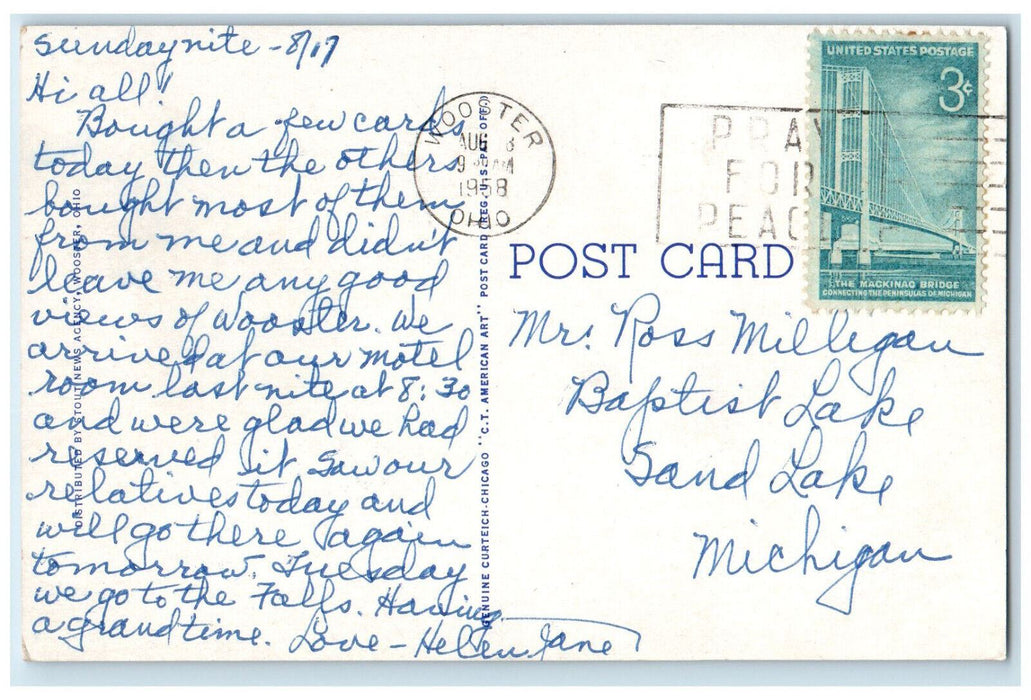 Sunday nite - 8/17
Hi all!
Bought a few cards
today then the others
bought most of them
from me and didn't
leave me any good
views of Wooster. We
arrived at our motel
room last nite at 8:30
and were glad we had
reserved it. Saw our
relatives today and
will go there again
tomorrow, Tuesday
we go to the Falls. Having
a grand time. Love - Helen Jane
DISTRIBUTED BY STOUT NEWS AGENCY, WOOSTER, OHIO
GENUINE CURTEICH-CHICAGO "C.T. AMERICAN ART" POST CARD (REG. U.S. PAT. OFF.)
WOOSTER
AUG 18
9 AM
1958
OHIO
PRAY
FOR
PEACE
UNITED STATES POSTAGE
3¢
THE MACKINAC BRIDGE
CONNECTING THE PENINSULAS OF MICHIGAN
POST CARD
Mrs. Ross Millegan
Baptist Lake
Sand Lake
Michigan